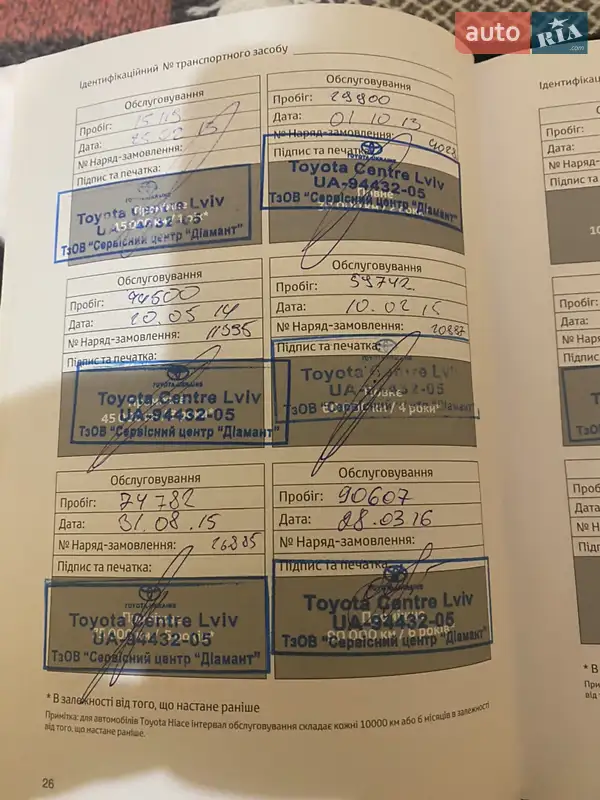 auto RIA .com
Ідентифікаційний № транспортного засобу
Обслуговування
Пробіг: 15119
Дата: 13
№ Наряд-замовлення:
Підпис та печатка:
TOYOTA UKRAINE
Toyota Centre Lviv
UA-94432-05
ТзОВ "Сервісний центр "Діамант"
Обслуговування
Пробіг: 29800
Дата: 01 10 13
№ Наряд-замовлення:
Підпис та печатка:
TOYOTA UKRAINE
Toyota Centre Lviv
UA-94432-05
ТзОВ "Сервісний центр "Діамант"
Обслуговування
Пробіг: 44500
Дата: 20.05 14
№ Наряд-замовлення: 11995
Підпис та печатка:
TOYOTA UKRAINE
Toyota Centre Lviv
UA-94432-05
ТзОВ "Сервісний центр "Діамант"
Обслуговування
Пробіг: 59742
Дата: 10.02 15
№ Наряд-замовлення: 20887
Підпис та печатка:
Toyota Centre Lviv
UA-94432-05
60 000 км / 4 роки*
ТзОВ "Сервісний центр "Діамант"
Обслуговування
Пробіг: 74782
Дата: 31.08.15
№ Наряд-замовлення: 26885
Підпис та печатка:
TOYOTA UKRAINE
Toyota Centre Lviv
UA-94432-05
ТзОВ "Сервісний центр "Діамант"
Обслуговування
Пробіг: 90607
Дата: 28.03.16
№ Наряд-замовлення:
Підпис та печатка:
TOYOTA UKRAINE
Toyota Centre Lviv
UA-94432-05
90 000 км / 6 років*
ТзОВ "Сервісний центр "Діамант"
* В залежності від того, що настане раніше
Примітка: для автомобілів Toyota Hiace інтервал обслуговування складає кожні 10000 км або 6 місяців в залежності
від того, що настане раніше.
26